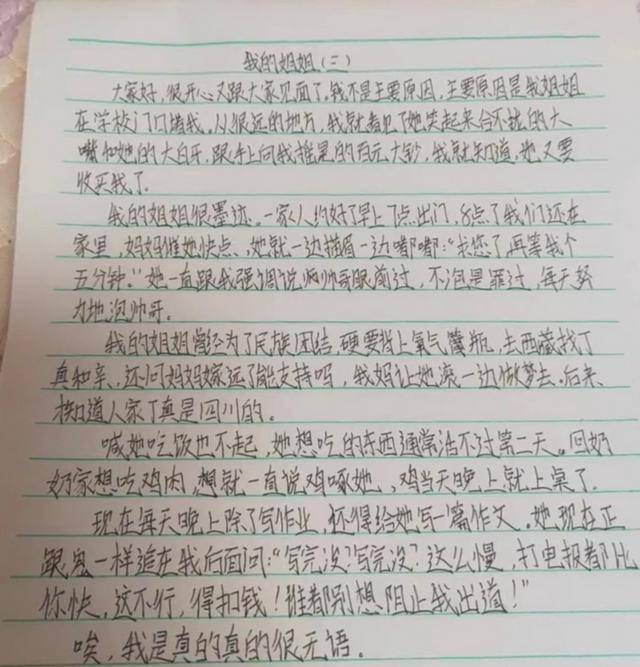 我的姐姐(二)
大家好，很开心又跟大家见面了，我不是主要原因，主要原因是我姐姐
在学校门口堵我，从很远的地方，我就看见了她笑起来合不拢的大
嘴和她的大白牙，跟手上向我摇晃的百元大钞，我就知道，她又要
收买我了。
我的姐姐很墨迹。一家人约好了早上7点出门，8点了我们还在
家里，妈妈催她快点，她就一边描眉一边嘟嘟："求您了，再等我个
五分钟。"她一直跟我强调说帅帅哥眼前过，不泡是罪过，每天努
力地泡帅哥。
我的姐姐曾经为了民族团结，硬要背上氧气瓶，去西藏找丁
真和亲，还问妈妈嫁远了能支持吗，我妈让她滚一边做梦去。后来
才知道人家丁真是四川的。
喊她吃饭也不起，她想吃的东西通常活不过第二天。回奶
奶家想吃鸡肉，想就一直说鸡啄她，鸡当天晚上就上桌了。
现在每天晚上除了写作业，还得给她写一篇作文。她现在正
跟鬼一样追在我后面问："写完没？写完没？这么慢，打电报都比
你快，这不行，得扣钱！谁都别想阻止我出道！"
唉，我是真的真的很无语。